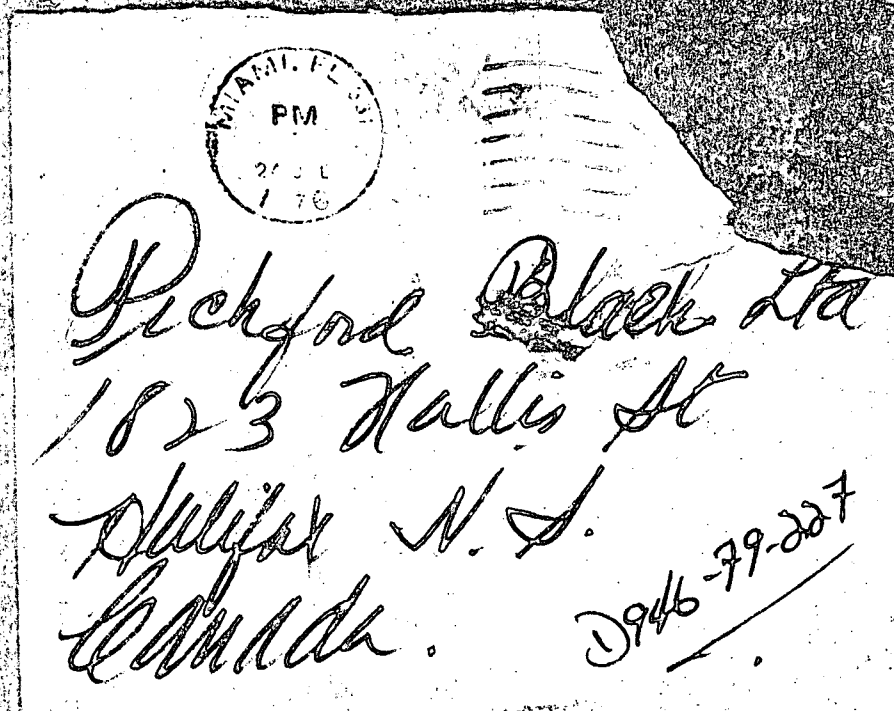 MIAMI, FL 331
PM
JUL
Pickford Black Ltd
1823 Hallis St
Halifax N. S.
Canada.
D946-79-227